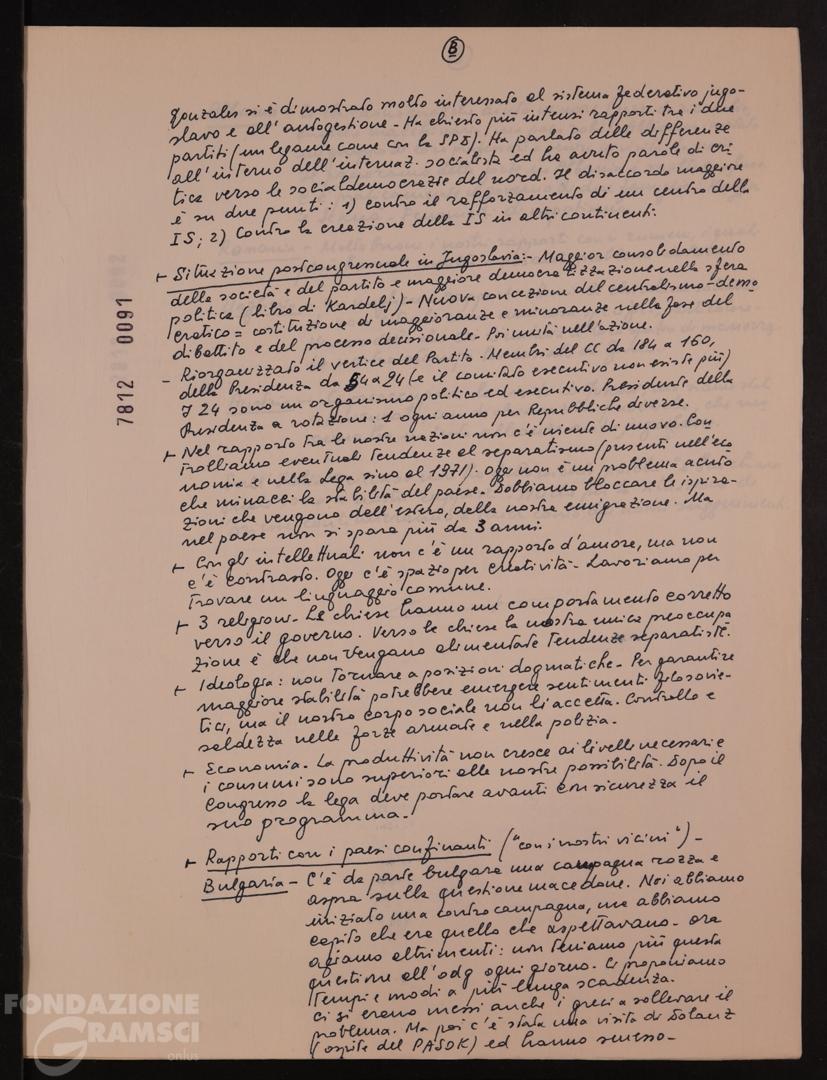 B
Gonzales si è dimostrato molto interessato al sistema federativo jugo-
slavo e all'autogestione - Ha chiesto più intensi rapporti tra i due
partiti (un legame come con la SPD). Ha parlato delle differenze
all'interno dell'internaz. socialista ed ha avuto parole di cri-
tica verso le socialdemocrazie del nord. Il disaccordo maggiore
è su due punti: 1) contro il rafforzamento di un centro della
IS; 2) Contro la creazione della IS in altri continenti.
- Situazione postcongressuale in Jugoslavia: - Maggior consolidamento
della società e del partito e maggiore democratizzazione nella sfera
politica (libro di Kardelj) - Nuova concezione del centralismo-demo
cratico = costituzione di maggioranze e minoranze nella fase del
dibattito e del processo decisionale - Poi unità nell'azione.
- Riorganizzato il vertice del Partito - Membri del CC da 184 a 160,
della Presidenza da 54 a 24 (e il comitato esecutivo non esiste più)
I 24 sono un organismo politico ed esecutivo. Presidente della
Presidenza a rotazione: 1 ogni anno per Repubbliche diverse.
- Nel rapporto tra le nostre nazioni non c'è niente di nuovo. Con
trolliamo eventuali tendenze al separatismo (presenti nell'eco
nomia e nella Lega sino al 1971). Oggi non è un problema acuto
che minacci la stabilità del paese - Dobbiamo bloccare le ispira-
zioni che vengono dall'estero, della nostra emigrazione. Ma
nel paese non si spara più da 3 anni.
- Con gli intellettuali non c'è un rapporto d'amore, ma non
c'è contrasto. Oggi c'è spazio per creatività - Lavoriamo per
trovare un linguaggio comune.
- 3 religioni - Le chiese hanno un comportamento corretto
verso il governo. Verso le chiese la nostra unica preoccupa
zione è che non vengano alimentate tendenze separatiste.
- Ideologia: non tornare a posizioni dogmatiche - Per garantire
maggiore stabilità potrebbero emergere sentimenti filosovie-
tici, ma il nostro corpo sociale non li accetta. Controllo e
saldezza nelle forze armate e nella polizia -
- Economia - La produttività non cresce ai livelli necessari e
i consumi sono superiori alle nostre possibilità. Dopo il
Congresso la lega deve portare avanti con sicurezza il
suo programma -
- Rapporti con i paesi confinanti ("con i nostri vicini") -
Bulgaria - C'è da parte bulgara una campagna rozza e
aspra sulla questione macedone. Noi abbiamo
iniziato una contro campagna, ma abbiamo
capito che era quello che aspettavano - Ora
agiamo altrimenti: non teniamo più questa
questione all'odg ogni giorno. Ci proponiamo
tempi e modi a più lunga scadenza.
Ci si erano messi anche i greci a sollevare il
problema. Ma poi c'è stata una visita di Dolanz
(ospite del PASOK) ed hanno smesso -
7812 0091
FONDAZIONE
GRAMSCI
onlus